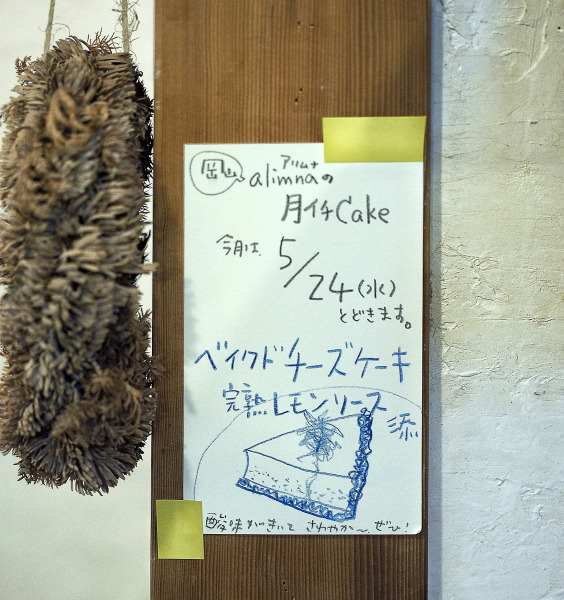 岡山
アリムナ
alimnaの
月イチCake
今月は、
5/24(水)
とどきます。
ベイクドチーズケーキ
完熟レモンソース
添
酸味がきいて さわやか〜、ぜひ!